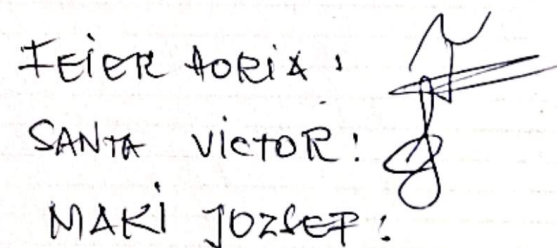 FEiER HORiA :
SANTA ViCTOR :
MAKi JOZSEF :